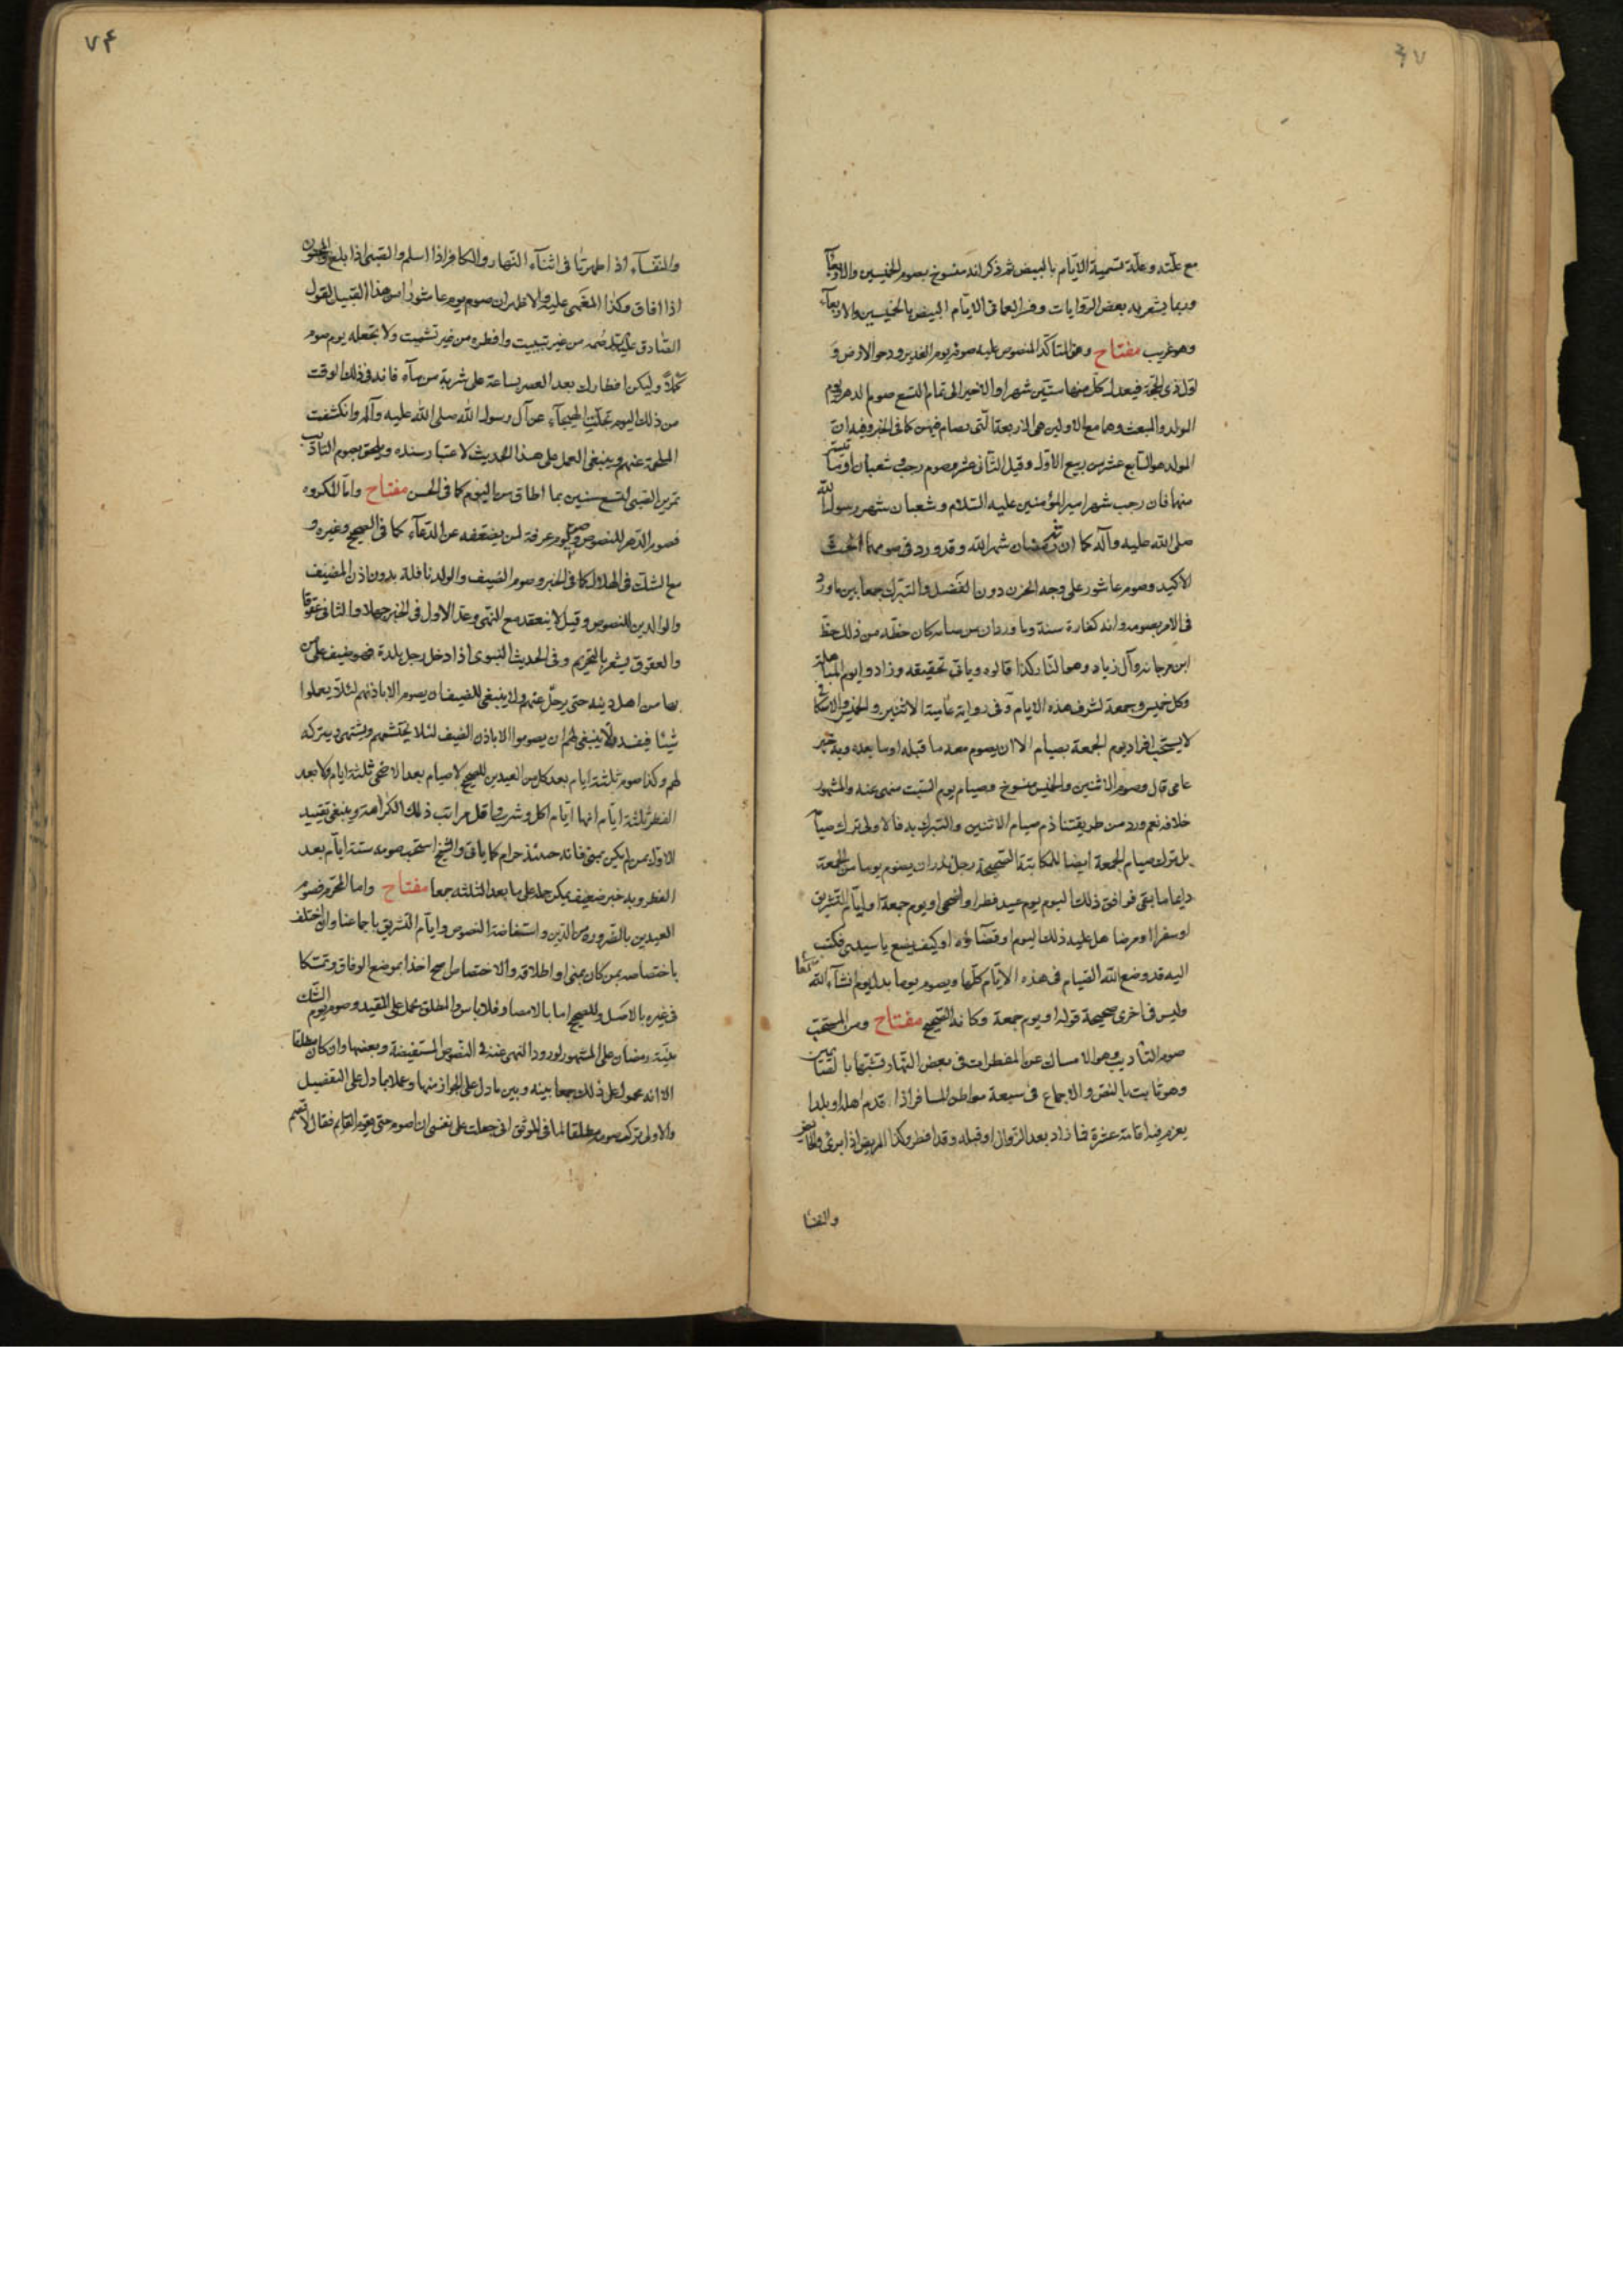 ٤٧
مع علته وعلة تسمية الايام بالبيض ثم ذكر انه منسوخ بصوم الخميسين والاربعآ
وربما يشعر به بعض الروايات الايام البيض بالخميسين والاربعآء
وهو غريب مفتاح المتأكد المنصوص عليه صوم يوم الغدير ودحو الارض و
اول ذى الحجة فيعدل كل منها ستين شهرا والاخير الى تمام التسع صوم الدهر ويوم
المولد والمبعث وهما مع الاولين هى الاربعة التى يصام فيهن كما فى الخبر وفيه ان
المولد هو السابع عشر من ربيع الاول وقيل الثانى عشر وصوم رجب وشعبان او ما تيسر
منهما فان رجب شهر امير المؤمنين عليه السلام وشعبان شهر رسول الله
صلى الله عليه وآله كما ان شهر رمضان شهر الله وقد ورد فى صومهما الحث
الاكيد وصوم عاشور على وجه الحزن دون الفضل والتبرك جمعا بين ما ورد
فى الامر بصومه وانه كفارة سنة وما ورد ان من صامه كان حظه من ذلك حظ
ابن مرجانه وآل زياد وهو النار كذا قالوه وياتى تحقيقه وزاد وا يوم المباهلة
وكل خميس وجمعة لشرف هذه الايام وفى رواية عامية الاثنين والخميس
لا يستحب افراد يوم الجمعة بصيام الا ان يصوم معه ما قبله او ما بعده وبه خبر
عامى قال وصوم الاثنين والخميس منسوخ وصيام يوم السبت منهى عنه والمشهور
خلافه نعم ورد من طريقتنا ذم صيام الاثنين والتبرك به فالاولى ترك صيامه
بل ترك صيام الجمعة ايضا للمكاتبة الصحيحة رجل نذر ان يصوم يوما من الجمعة
دايما ما بقى فوافق ذلك اليوم يوم عيد فطر او اضحى او يوم جمعة او ايام التشريق
او سفر او مرضا هل عليه ذلك اليوم او قضآؤه او كيف يصنع يا سيدى فكتب
اليه قد وضع الله الصيام فى هذه الايام كلها ويصوم يوما بدل يوم انشآء الله
وليس فى اخرى صحيحة قوله او يوم جمعة وكانه الصحيح مفتاح ومن المستحب
صوم التأديب وهو الامساك عن المفطرات فى بعض النهار تشبها بالصائمين
وهو ثابت بالنص والاجماع فى سبعة مواطن المسافر اذا قدم اهله او بلدا
يعزم فيه اقامة عشرة فما زاد بعد الزوال او قبله وقد افطر وكذا المريض اذا برئ والحايض
والنفسا
٧۴
والنفسآء اذا طهرتا فى اثنآء النهار والكافر اذا اسلم والصبى اذا بلغ والمجنون
اذا افاق وكذا المغمى عليه والاظهر ان صوم يوم عاشورا من هذا القبيل لقول
الصادق عليه السلم صمه من غير تبييت وافطره من غير تشميت ولا تجعله يوم صوم
كملاً وليكن افطارك بعد العصر بساعة على شربة من مآء فانه فى ذلك الوقت
من ذلك اليوم تجلت الهيجآء عن آل رسول الله صلى الله عليه وآله وانكشفت
الملحمة عنهم وينبغى العمل على هذا الحديث لاعتبار سنده ويلحق بصوم التاديب
تمرين الصبى لتسع سنين بما اطاق من اليوم كما فى الحسن مفتاح واما المكروه
فصوم الدهر للنصوص وصوم يوم عرفة لمن يضعفه عن الدعآء كما فى الصحيح وغيره و
مع الشك فى الهلال كما فى الخبر وصوم الضيف والولد نافلة بدون اذن المضيف
والوالدين للنصوص وقيل لا ينعقد مع النهى وعد الاول فى الخبر جهلا والثانى عقوقا
والعقوق يشعر بالتحريم وفى الحديث النبوى اذا دخل رجل بلدة فهو ضيف على من
بها من اهل دينه حتى يرحل عنهم ولا ينبغى للضيف ان يصوم الا باذنهم لئلا يعملوا
شيئا فيفسد ولا ينبغى لهم ان يصوموا الا باذن الضيف لئلا يحتشمهم ويشتهى ويتركه
لهم وكذا صوم ثلثة ايام بعد كل من العيدين للصحيح لا صيام بعد الاضحى ثلثة ايام ولا بعد
الفطر ثلثة ايام انها ايام اكل وشرب واقل مراتب ذلك الكراهة وينبغى تقييد
الاول بمن لم يكن بمنى فانه حينئذ حرام كما ياتى والشيخ استحب صومه ستة ايام بعد
الفطر وبه خبر ضعيف يمكن حمله على ما بعد الثلثة جمعا مفتاح واما المحرم فصوم
العيدين بالضرورة من الدين واستفاضة النصوص وايام التشريق باجماعنا وان اختلف
باختصاصه بمن كان بمنى او اطلاقه والاختصاص اصح اخذا بموضع الوفاق وتمسكا
فى غيره بالاصل وللصحيح اما بالامصار فلا باس والمطلق يحمل على المقيد وصوم يوم الشك
بنية رمضان على المشهور لورود النهى عنه فى النصوص المستفيضة وبعضها وان كان مطلقا
الا انه محمول على ذلك جمعا بينه وبين ما دل على الجواز منها وعملا بما دل على التفصيل
والاولى ترك صومه مطلقا لما فى الموثق انى جعلت على نفسى ان اصوم حتى يقوم القايم فقال لا تصم